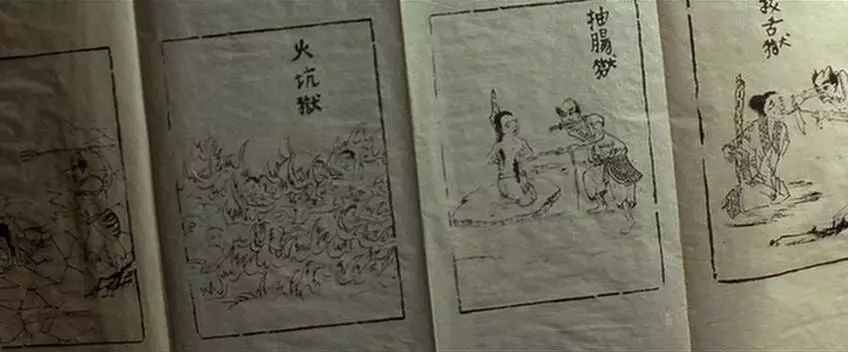 火坑獄
抽腸獄
拔舌獄